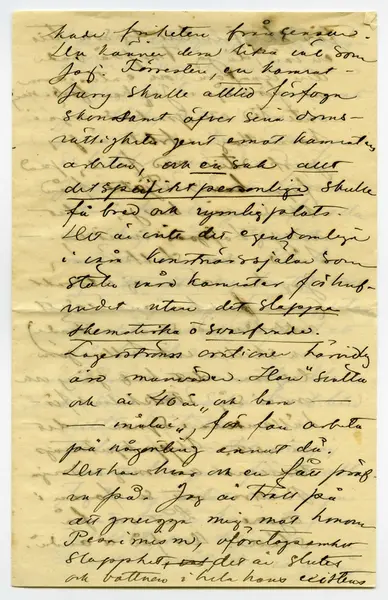 hade friheten från censur.
Du känner dem lika väl som
Jag. Förresten, en kamrat-
jury skulle alltid förfoga
skonsamt öfver sina doms-
rättigheter gent emot kamraters
arbeten, och en sak allt
det specifikt personliga skulle
få bred och rymlig plats.
Det är inte det egendomliga
i våra konstnärssjälar som
våra kamrater
utan det slappa
schematiska o svarfvade.
Lagerströms härvidlag
äro Han "sutta
och är 40 år" och han
— målare", får fan arbeta
på någonting annat då.
Det har han och en
på. Jag är trött på
att gnugga mig mot honom
Pessimism, oföretagsamhet
slapphet, det är slutet
och bottnen i hela hans existens